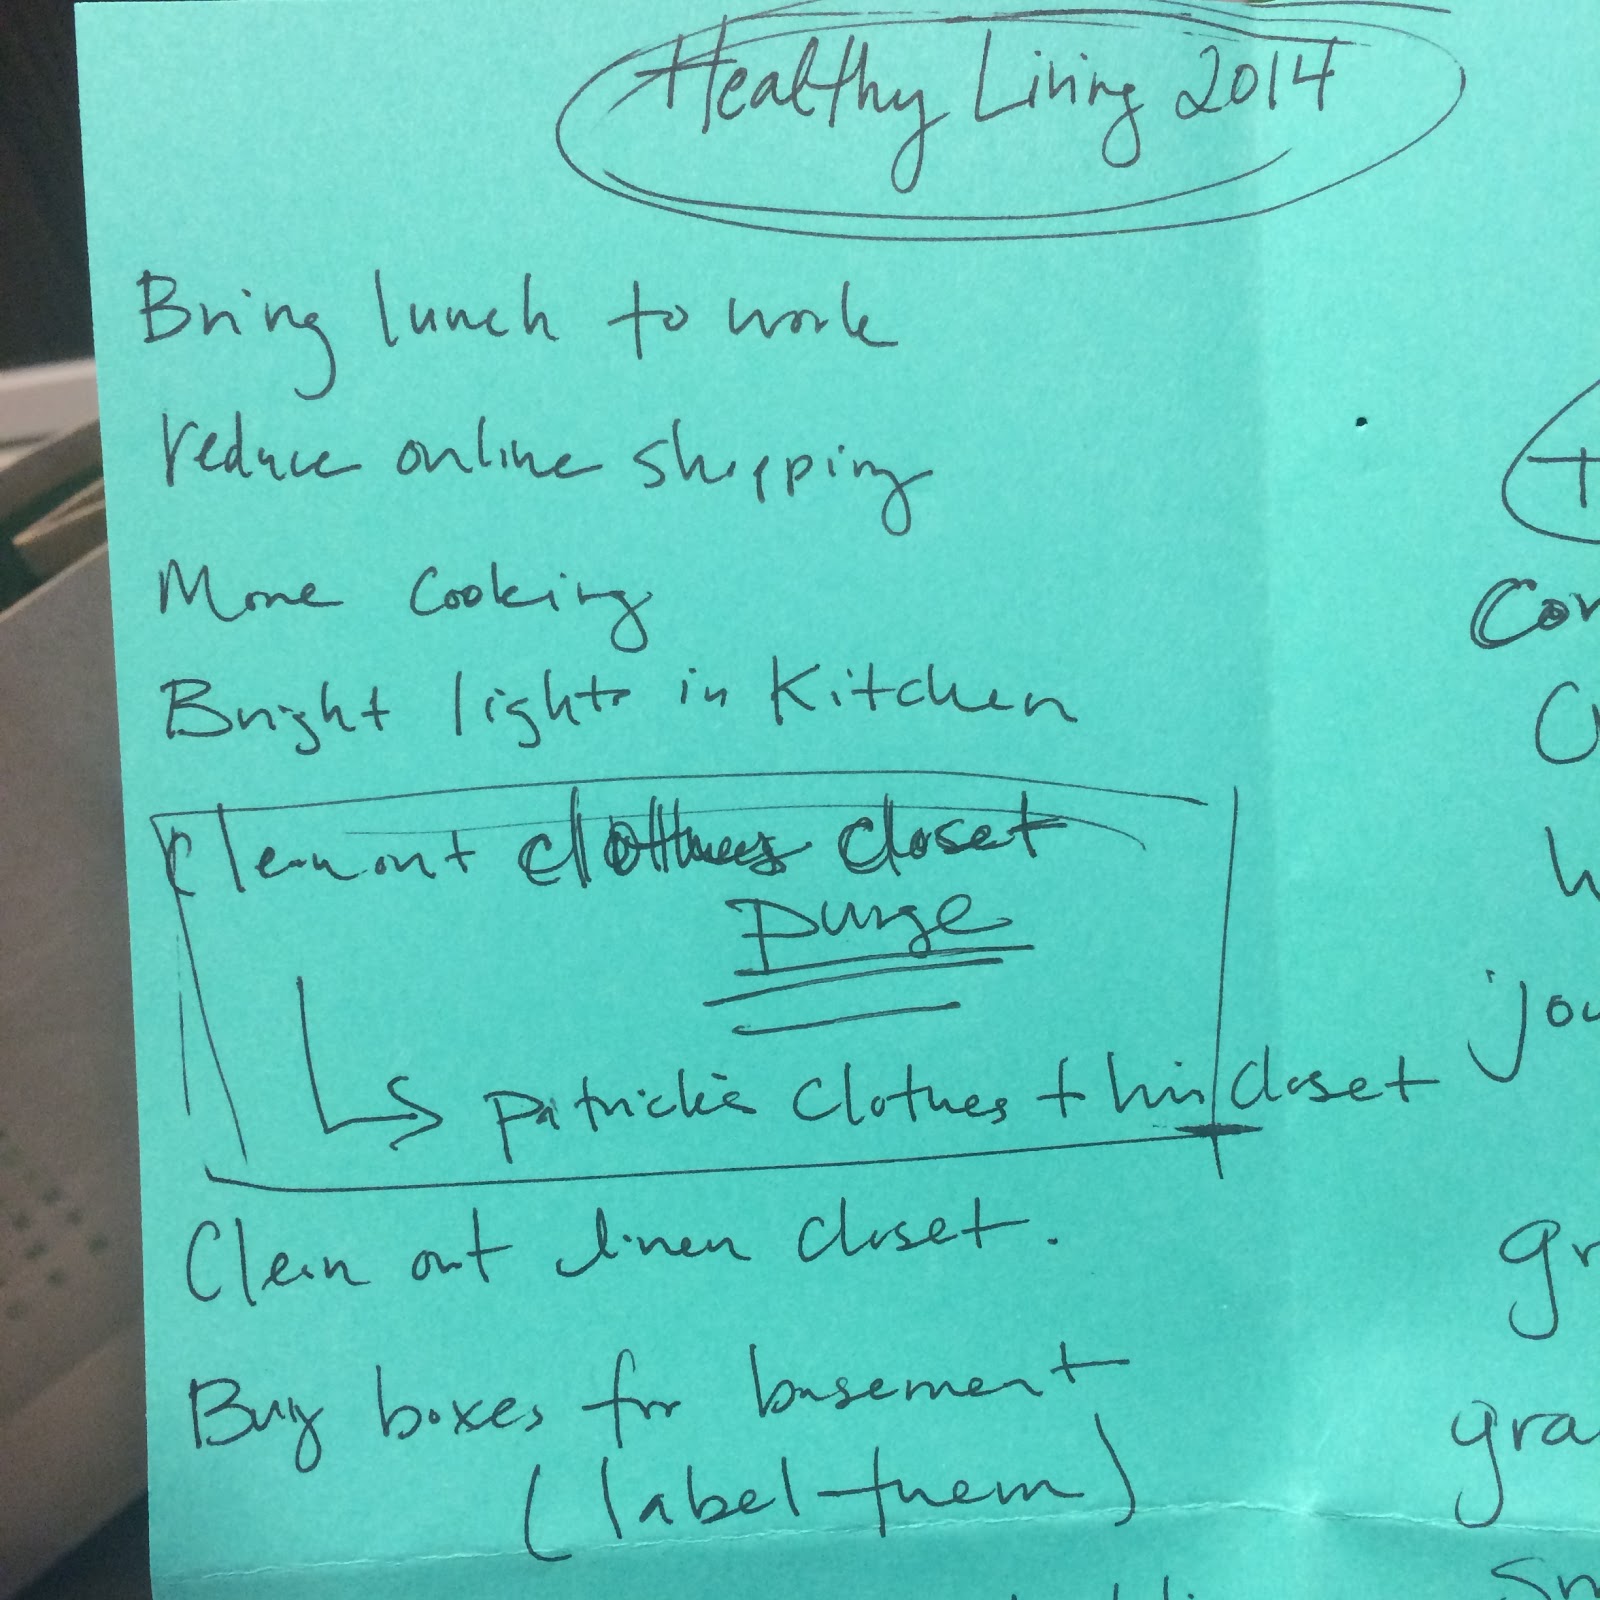 Healthy Living 2014
Bring lunch to work
reduce online shopping
More cooking
Bright lights in Kitchen
Clean out clothes closet
purge
Patrick's clothes + his closet
Clean out linen closet.
Buy boxes for basement
(label them)
Con
jou
gr
gra
Sm